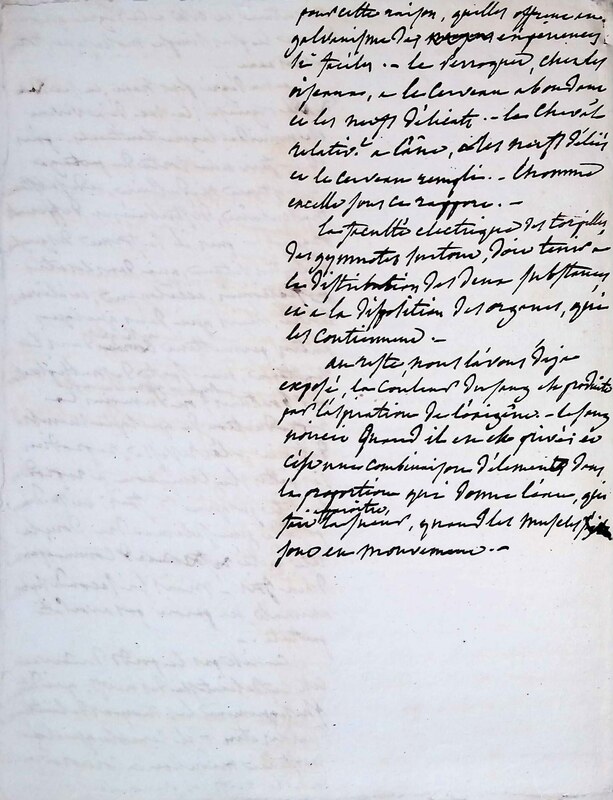 pour cette raison, quelles offrent au
galvanisme des experiences
si faciles. - le perroquet, chez les
oiseaux, a le cerveau abondant
et les nerfs délicats. - le cheval
relativt. a l'âne, a les nerfs déliés
et le cerveau rempli. - l'homme
excelle sous ce rapport. -
la faculté electrique des torpilles,
des gymnotes surtout, doit tenir a
la distribution des deux substances,
et a la disposition des organes, qui
les contiennent -
au reste nous l'avons déja
exposé, la couleur du sang est produite
par l'aspiration de l'oxigène. - le sang
noircit quand il en est privé; et
c'est une combinaison d'élements, dans
la proportion qui donne l'eau, qui
fait paroitre la sueur, quand les muscles
sont en mouvement. -